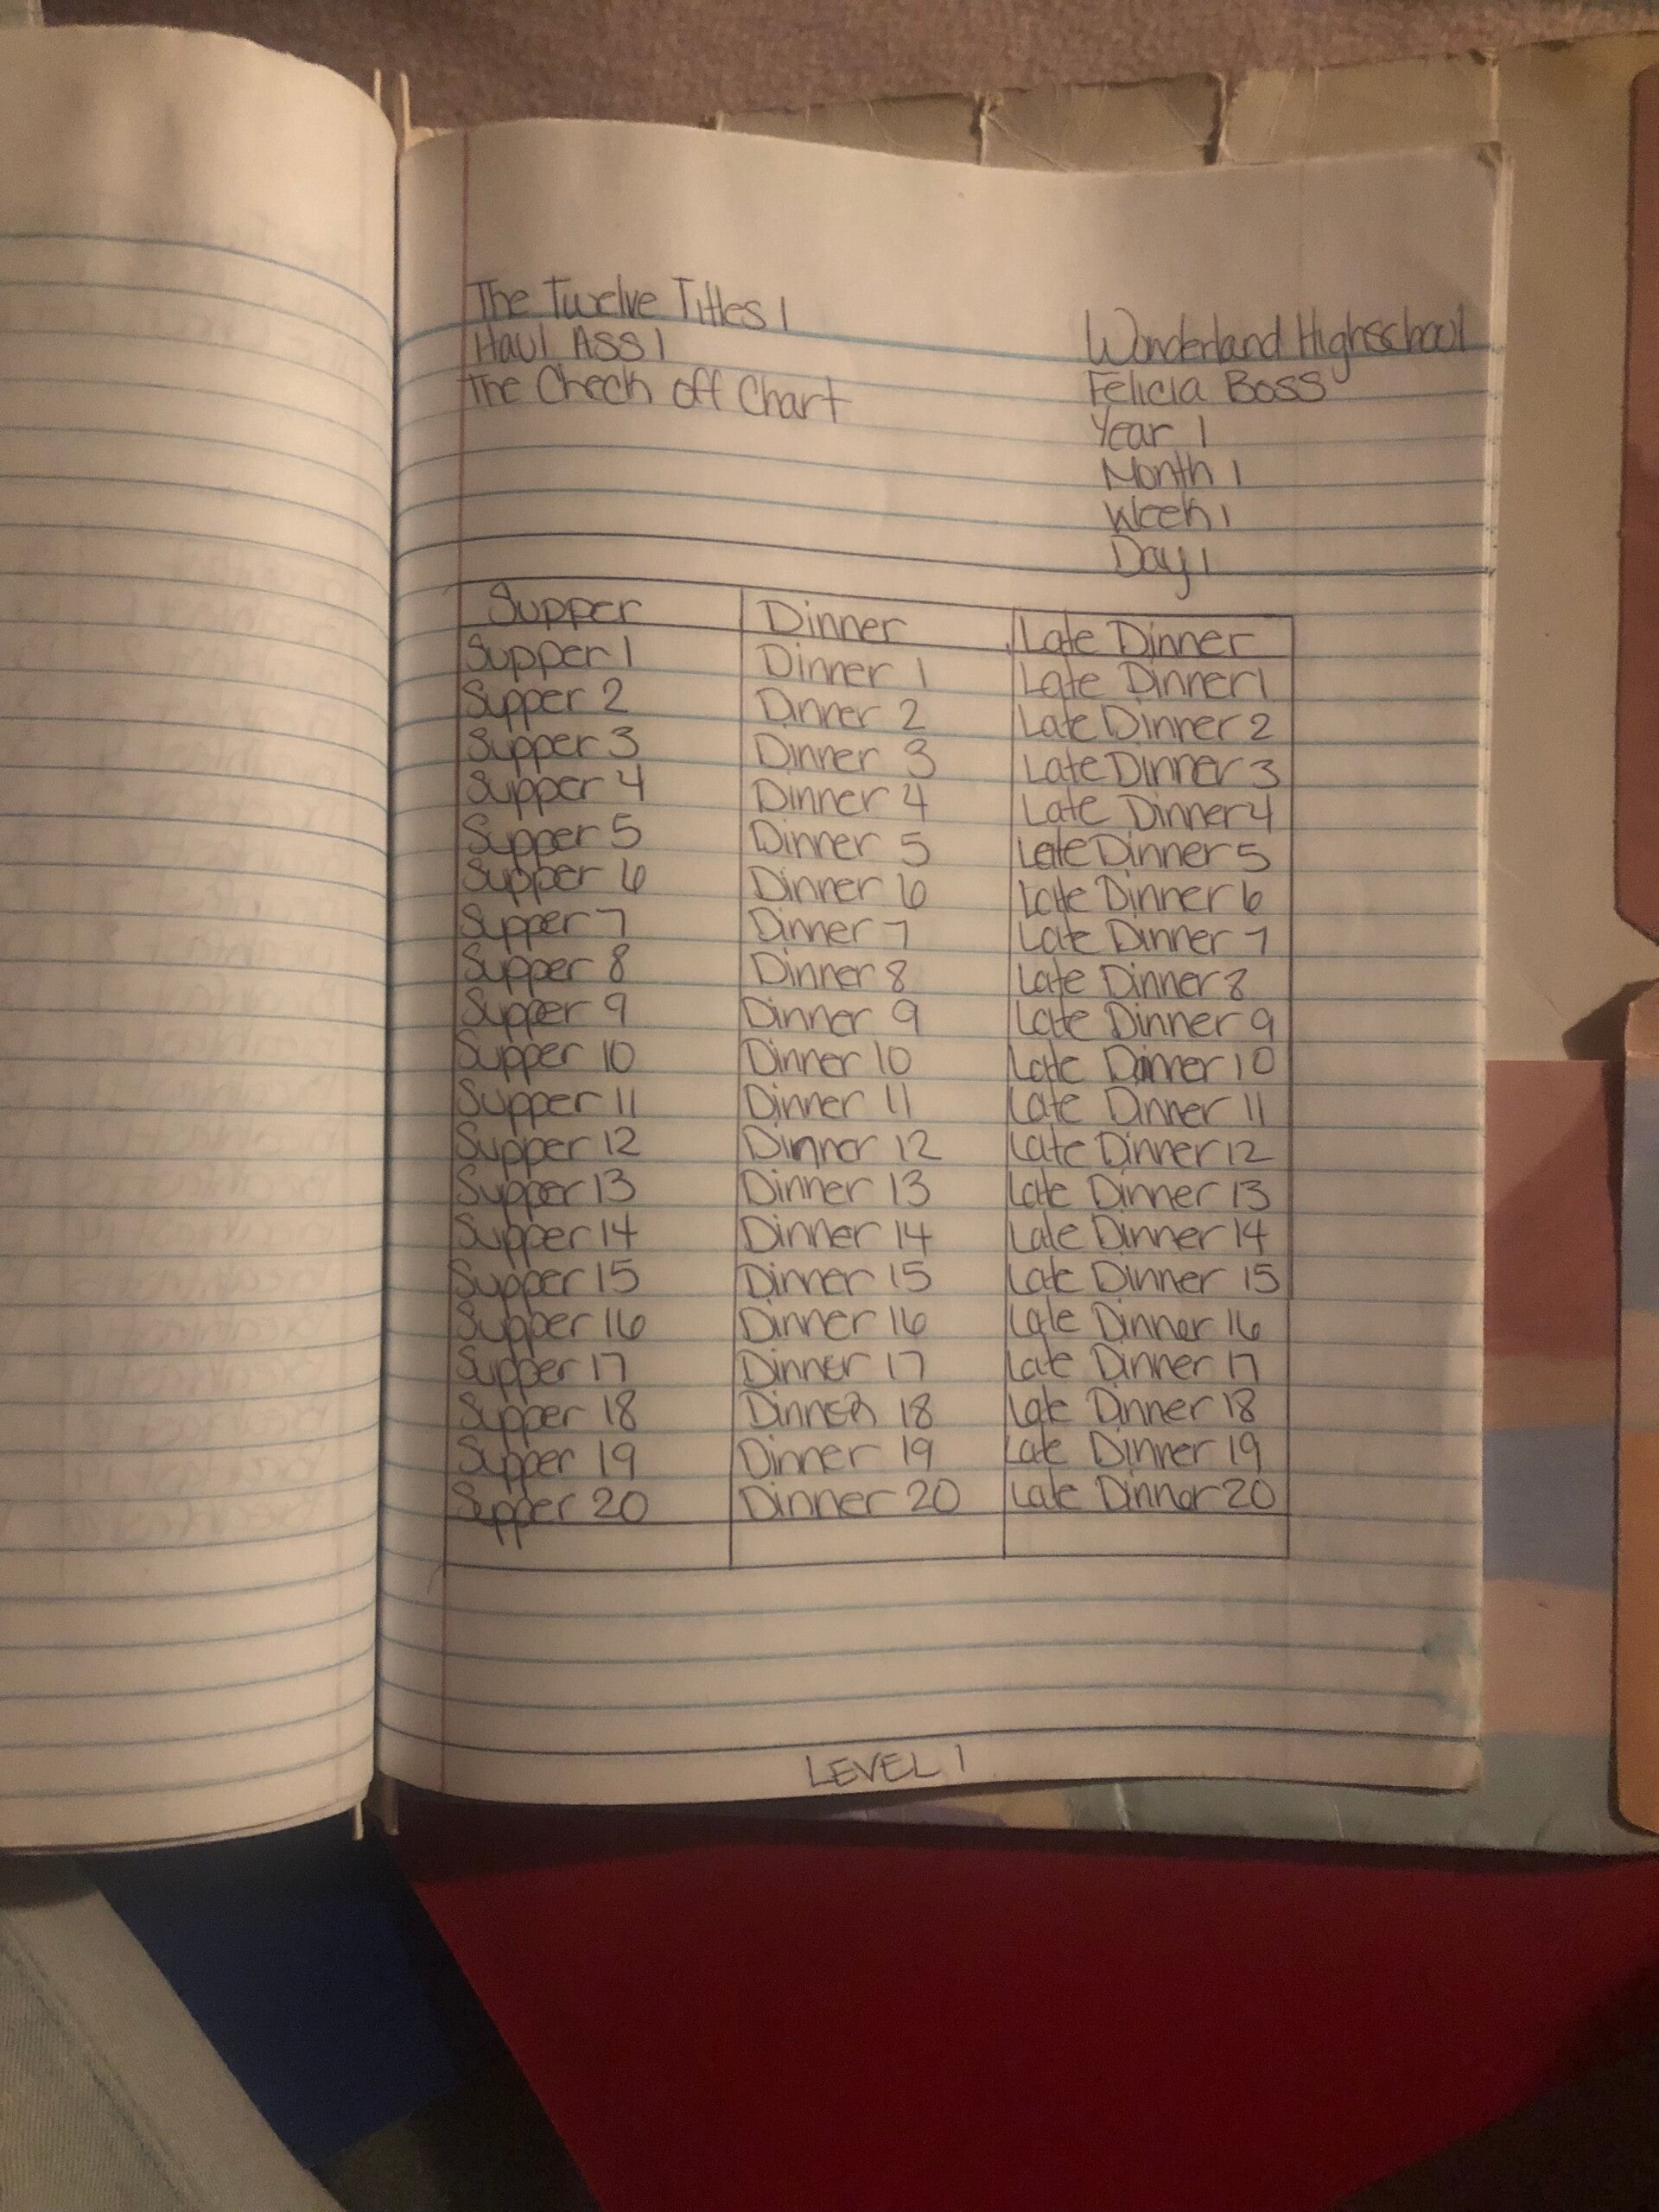 The Twelve Titles 1
Haul Ass 1
The Check off Chart
Wonderland Highschool
Felicia Boss
Year 1
Month 1
Week 1
Day 1
Supper Dinner Late Dinner
Supper 1 Dinner 1 Late Dinner 1
Supper 2 Dinner 2 Late Dinner 2
Supper 3 Dinner 3 Late Dinner 3
Supper 4 Dinner 4 Late Dinner 4
Supper 5 Dinner 5 Late Dinner 5
Supper 6 Dinner 6 Late Dinner 6
Supper 7 Dinner 7 Late Dinner 7
Supper 8 Dinner 8 Late Dinner 8
Supper 9 Dinner 9 Late Dinner 9
Supper 10 Dinner 10 Late Dinner 10
Supper 11 Dinner 11 Late Dinner 11
Supper 12 Dinner 12 Late Dinner 12
Supper 13 Dinner 13 Late Dinner 13
Supper 14 Dinner 14 Late Dinner 14
Supper 15 Dinner 15 Late Dinner 15
Supper 16 Dinner 16 Late Dinner 16
Supper 17 Dinner 17 Late Dinner 17
Supper 18 Dinner 18 Late Dinner 18
Supper 19 Dinner 19 Late Dinner 19
Supper 20 Dinner 20 Late Dinner 20
LEVEL 1